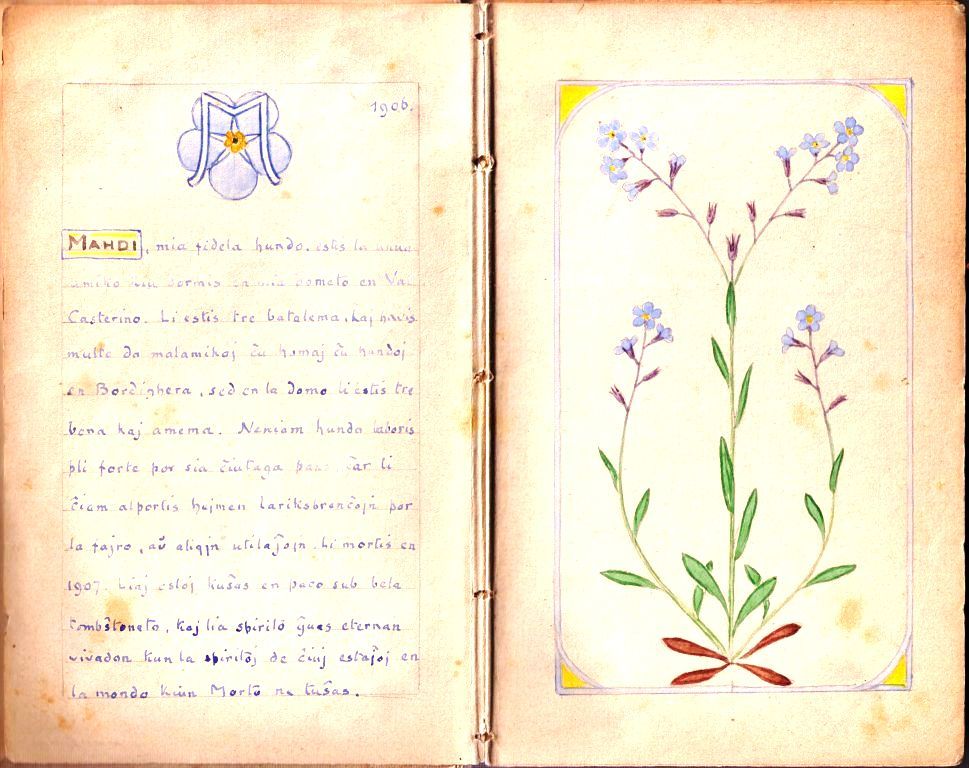 M
1906.
MAHDI, mia fidela hundo, estis la unua
amiko kiu dormis en mia dometo en Val
Casterino. Li estis tre batalema, kaj havis
multe da malamikoj ĉu homaj ĉu hundoj
en Bordighera, sed en la domo li estis tre
bona kaj amema. Neniam hundo laboris
pli forte por sia ĉiutaga pano, ĉar li
ĉiam alportis hejmen lariksbranĉojn por
la fajro, aŭ aliajn utilaĵojn. Li mortis en
1907. Liaj ostoj kuŝas en paco sub bela
tombŝtoneto, kaj lia spirito ĝuas eternan
vivadon kun la spiritoj de ĉiuj estaĵoj en
la mondo kiun Morto ne tuŝas.